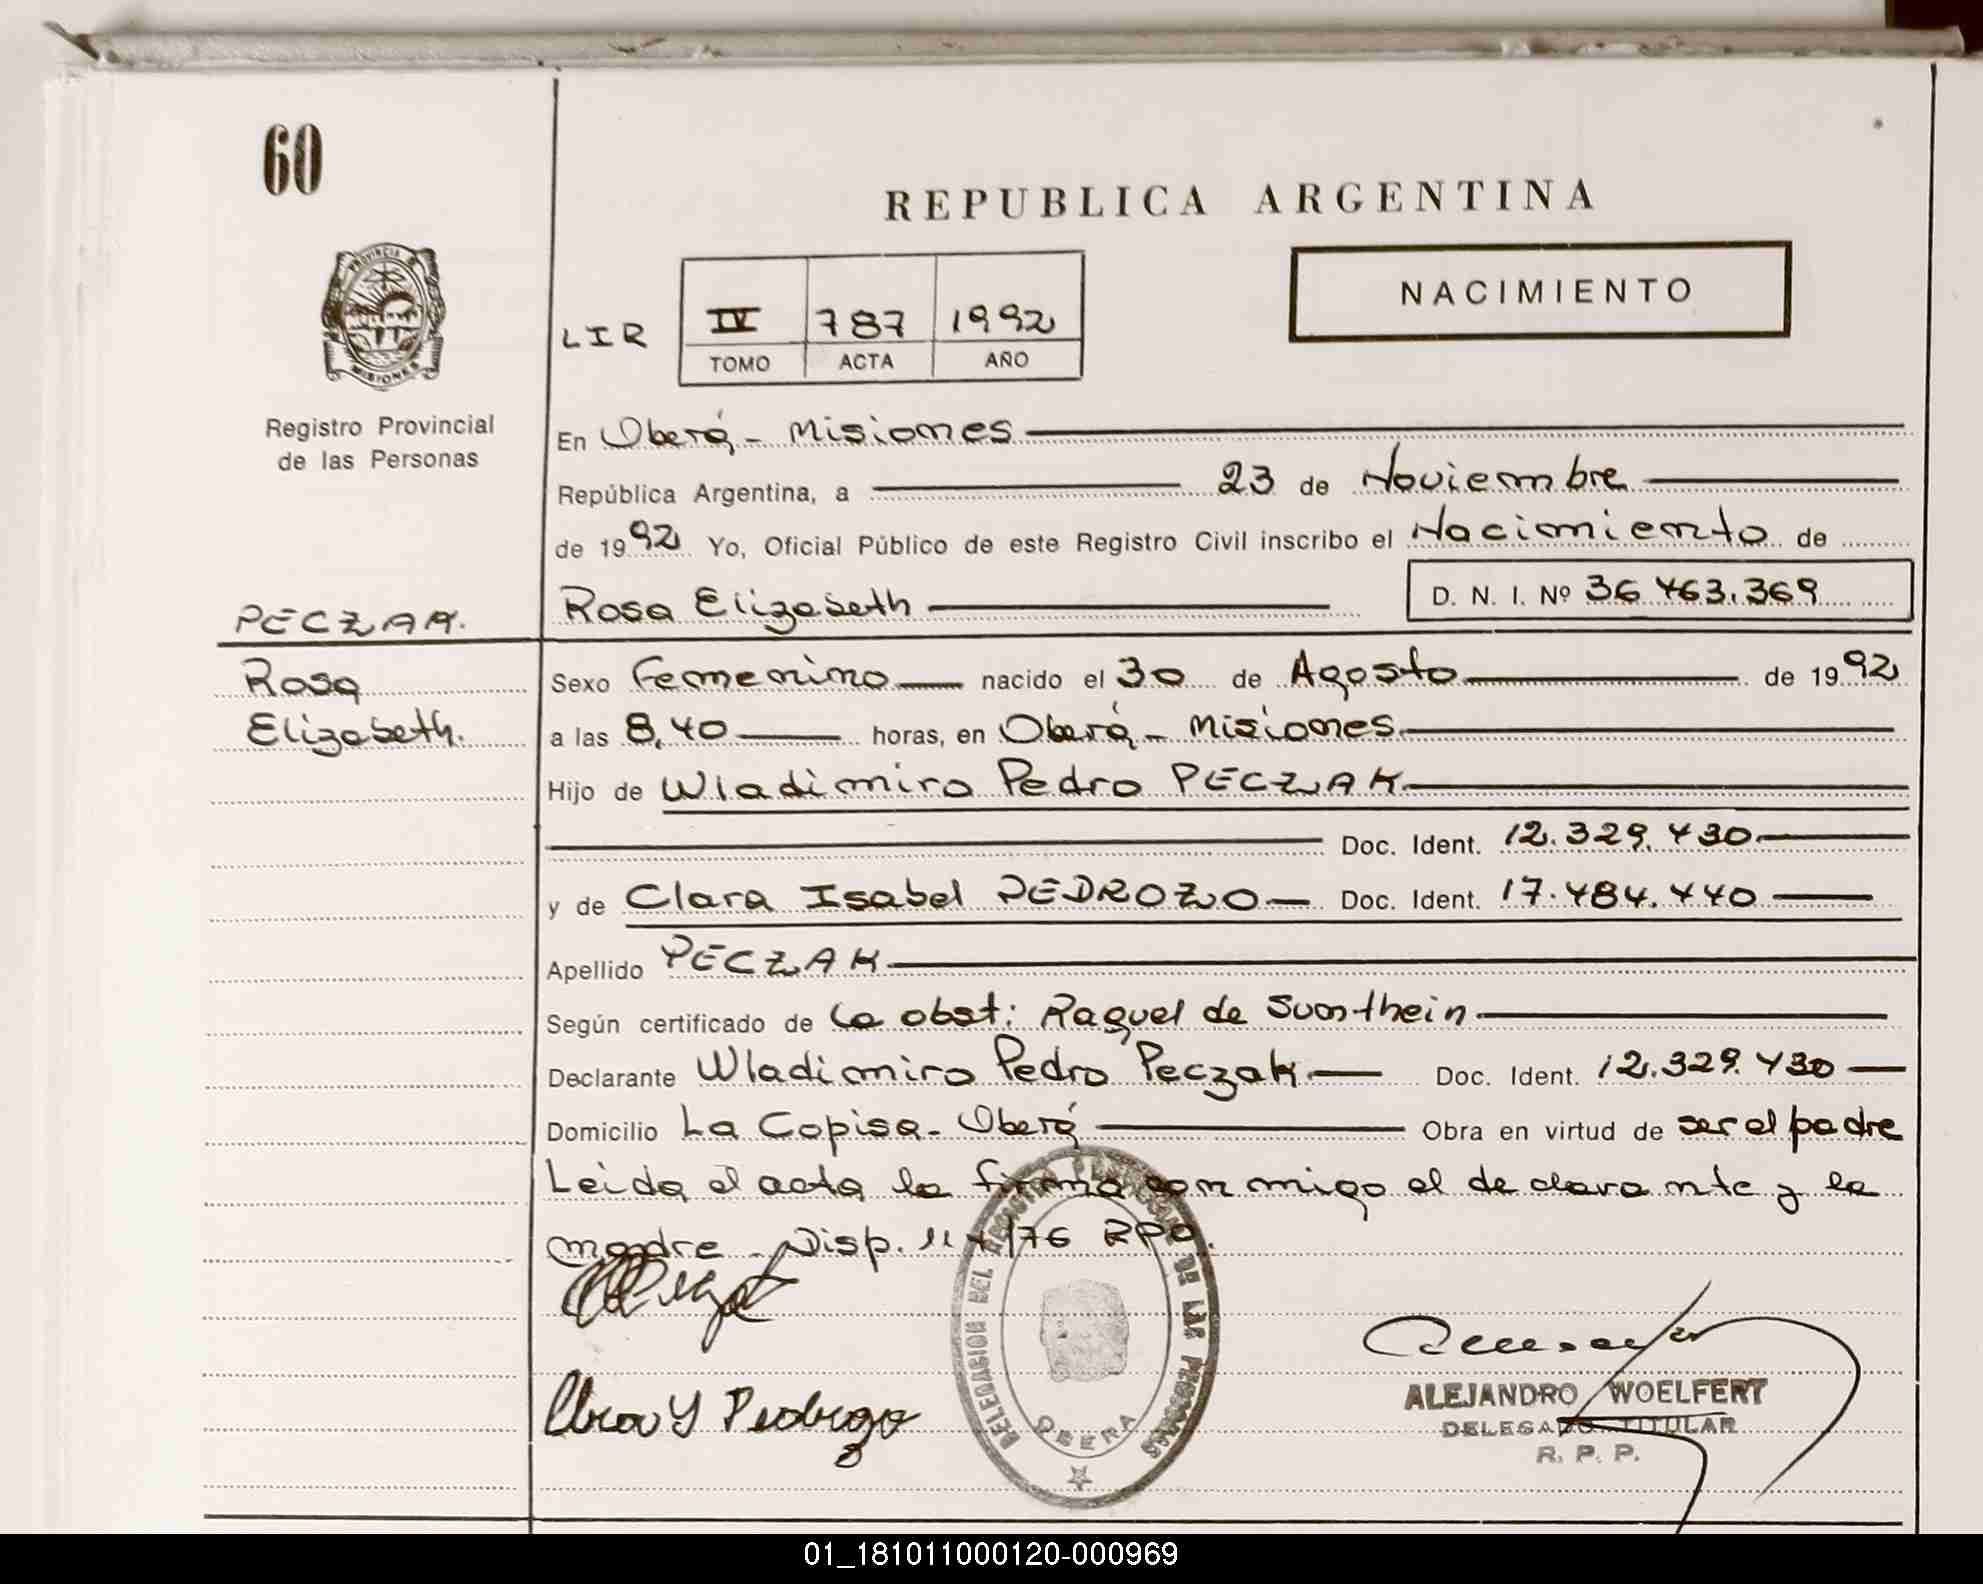 60
REPUBLICA ARGENTINA
PROVINCIA DE
MISIONES
NACIMIENTO
LIR IV 787 1992
TOMO ACTA AÑO
Registro Provincial
de las Personas
En Oberá - Misiones
República Argentina, a 23 de Noviembre
de 1992 Yo, Oficial Público de este Registro Civil inscribo el Nacimiento de
Rosa Elizabeth D. N. I. Nº 36.463.369
PECZAK.
Rosa
Elizabeth.
Sexo Femenino nacido el 30 de Agosto de 1992
a las 8,40 horas, en Oberá - Misiones
Hijo de Wladimiro Pedro PECZAK
Doc. Ident. 12.329.430
y de Clara Isabel PEDROZO Doc. Ident. 17.484.440
Apellido PECZAK
Según certificado de la obst: Raquel de Sunthein
Declarante Wladimiro Pedro Peczak Doc. Ident. 12.329.430
Domicilio La Copisa - Oberá Obra en virtud de ser el padre
Leida el acta la firma conmigo el declarante y la
madre - Disp. 114/76 RPP.
DELEGACION DEL REGISTRO PROVINCIAL DE LAS PERSONAS
OBERA
ALEJANDRO WOELFERT
DELEGADO TITULAR
R. P. P.
01_181011000120-000969